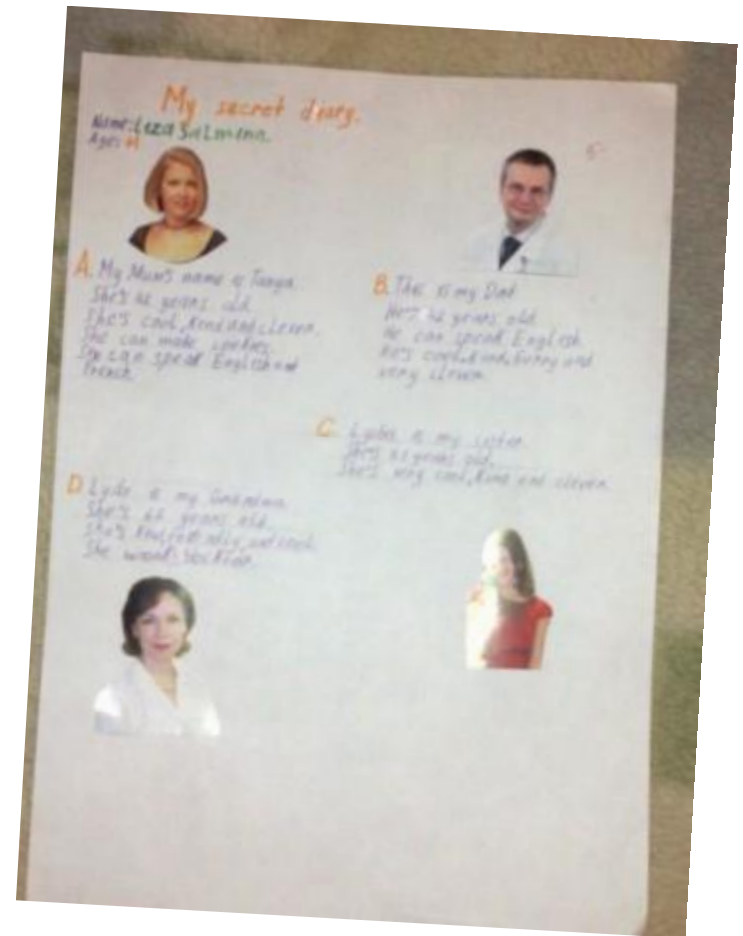 My secret diary.
Name: Leza Salmann.
Age:
5-
A. My Mum's name is Tanya.
She's 42 years old.
She's cool, kend and cleven.
She can make cookies.
She can speak English and
French.
B. This is my Dad
He's 42 years old
He can speak English.
He's cool, kind, funny and
very cleven
C. is my sister.
She's years old.
She's very cool, kind and cleven.
D is my Grandma
She's 66 years old.
She's kind, and cool.
She